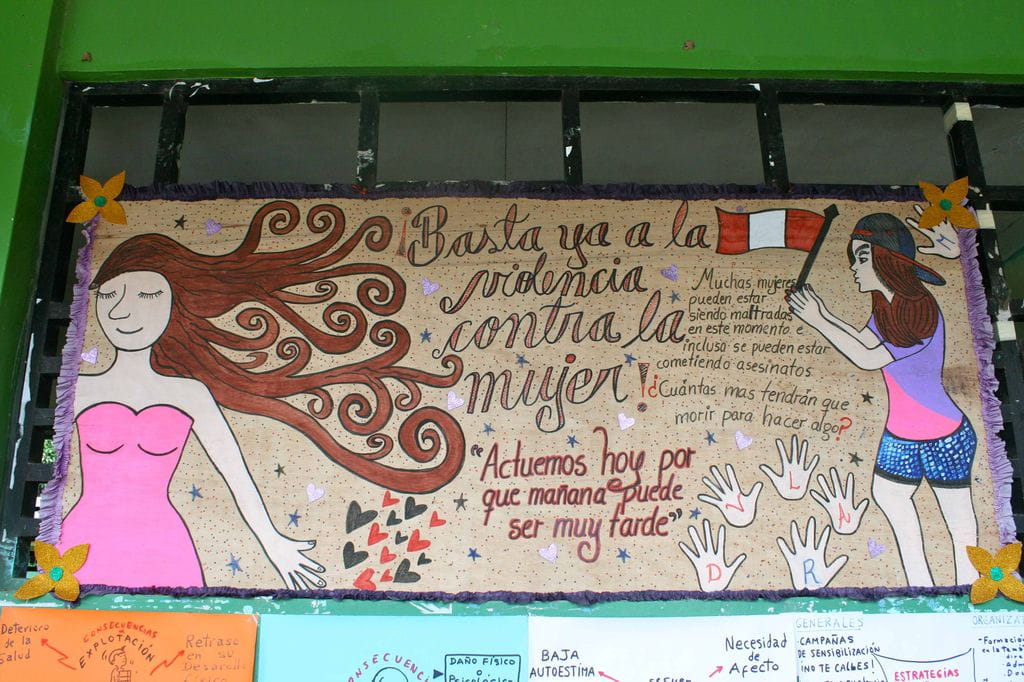 ¡Basta ya a la
violencia
contra la
mujer!
Muchas mujeres
pueden estar
siendo maltradas
en este momento e
inclusa se pueden estar
cometiendo asesinatos
¿Cuántas mas tendrán que
morir para hacer algo?
"Actuemos hoy por
que mañana puede
ser muy tarde"
V L A
D R
Deterioro
de la
Salud
CONSECUENCIAS
EXPLOTACIÓN
Retraso
en su
Desarrollo
DAÑO FÍSICO
O
BAJA
AUTOESTIMA
Necesidad
de
Afecto
GENERALES
CAMPAÑAS
DE SENSIBILIZACIÓN
¡NO TE CALLES!
ESTRATEGIAS